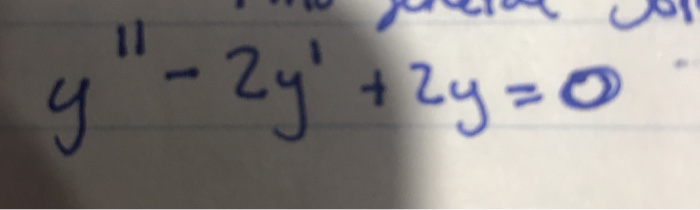 general
y'' - 2y' + 2y = 0